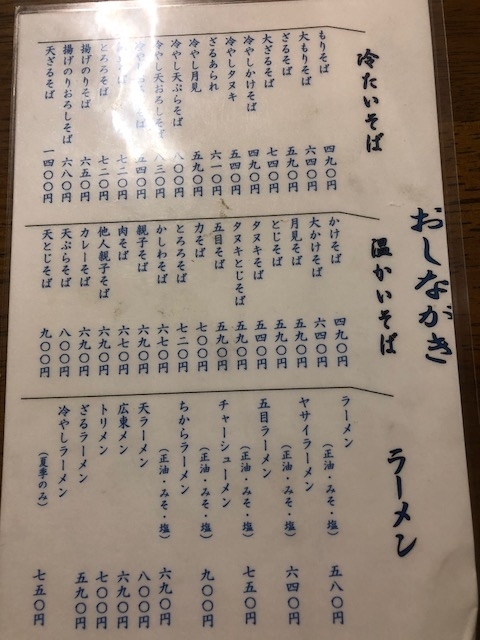 おしながき
冷たいそば
もりそば 四九〇円
大もりそば 六四〇円
ざるそば 五九〇円
大ざるそば 七四〇円
冷やしかけそば 四九〇円
冷やしタヌキ 五四〇円
ざるあられ 六一〇円
冷やし月見 五九〇円
冷やし天ぷらそば 八〇〇円
冷やし天おろしそば 八三〇円
そば 五四〇円
そば 七二〇円
とろろそば 七二〇円
揚げのりそば 六五〇円
揚げのりおろしそば 六八〇円
天ざるそば 一四〇〇円
温かいそば
かけそば 四九〇円
大かけそば 六四〇円
月見そば 五九〇円
とじそば 五九〇円
タヌキそば 五四〇円
タヌキとじそば 五九〇円
五目そば 五九〇円
力そば 七〇〇円
とろろそば 七二〇円
かしわそば 六七〇円
親子そば 六九〇円
肉そば 六七〇円
他人親子そば 六九〇円
カレーそば 六九〇円
天ぷらそば 八〇〇円
天とじそば 九〇〇円
ラーメン
ラーメン
(正油・みそ・塩) 五八〇円
ヤサイラーメン
(正油・みそ・塩) 六四〇円
五目ラーメン
(正油・みそ・塩) 七五〇円
チャーシューメン
(正油・みそ・塩) 九〇〇円
ちからラーメン
(正油・みそ・塩) 六九〇円
天ラーメン 八〇〇円
広東メン 六九〇円
トリメン 七〇〇円
ざるラーメン 五九〇円
冷やしラーメン
(夏季のみ) 七五〇円